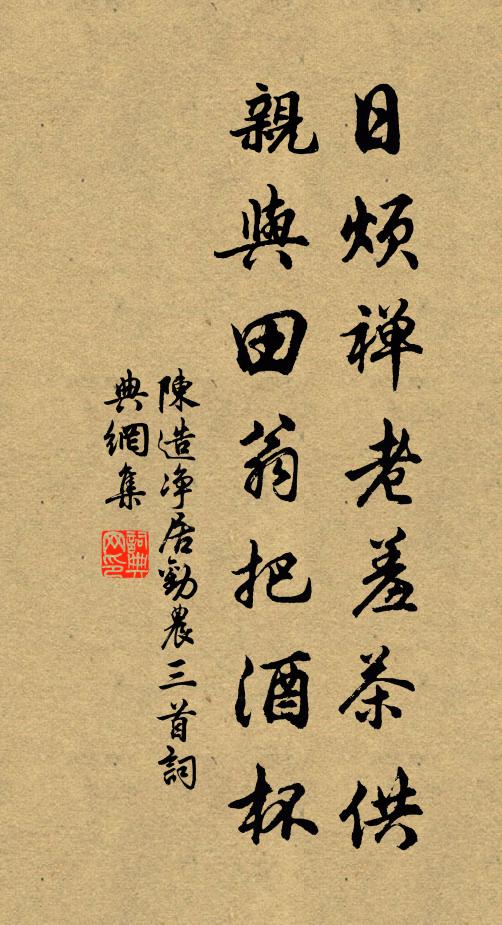 日煩禅老羞茶供
親與田翁把酒杯
陳造净居勸農三首詞
典網集
詞典网印